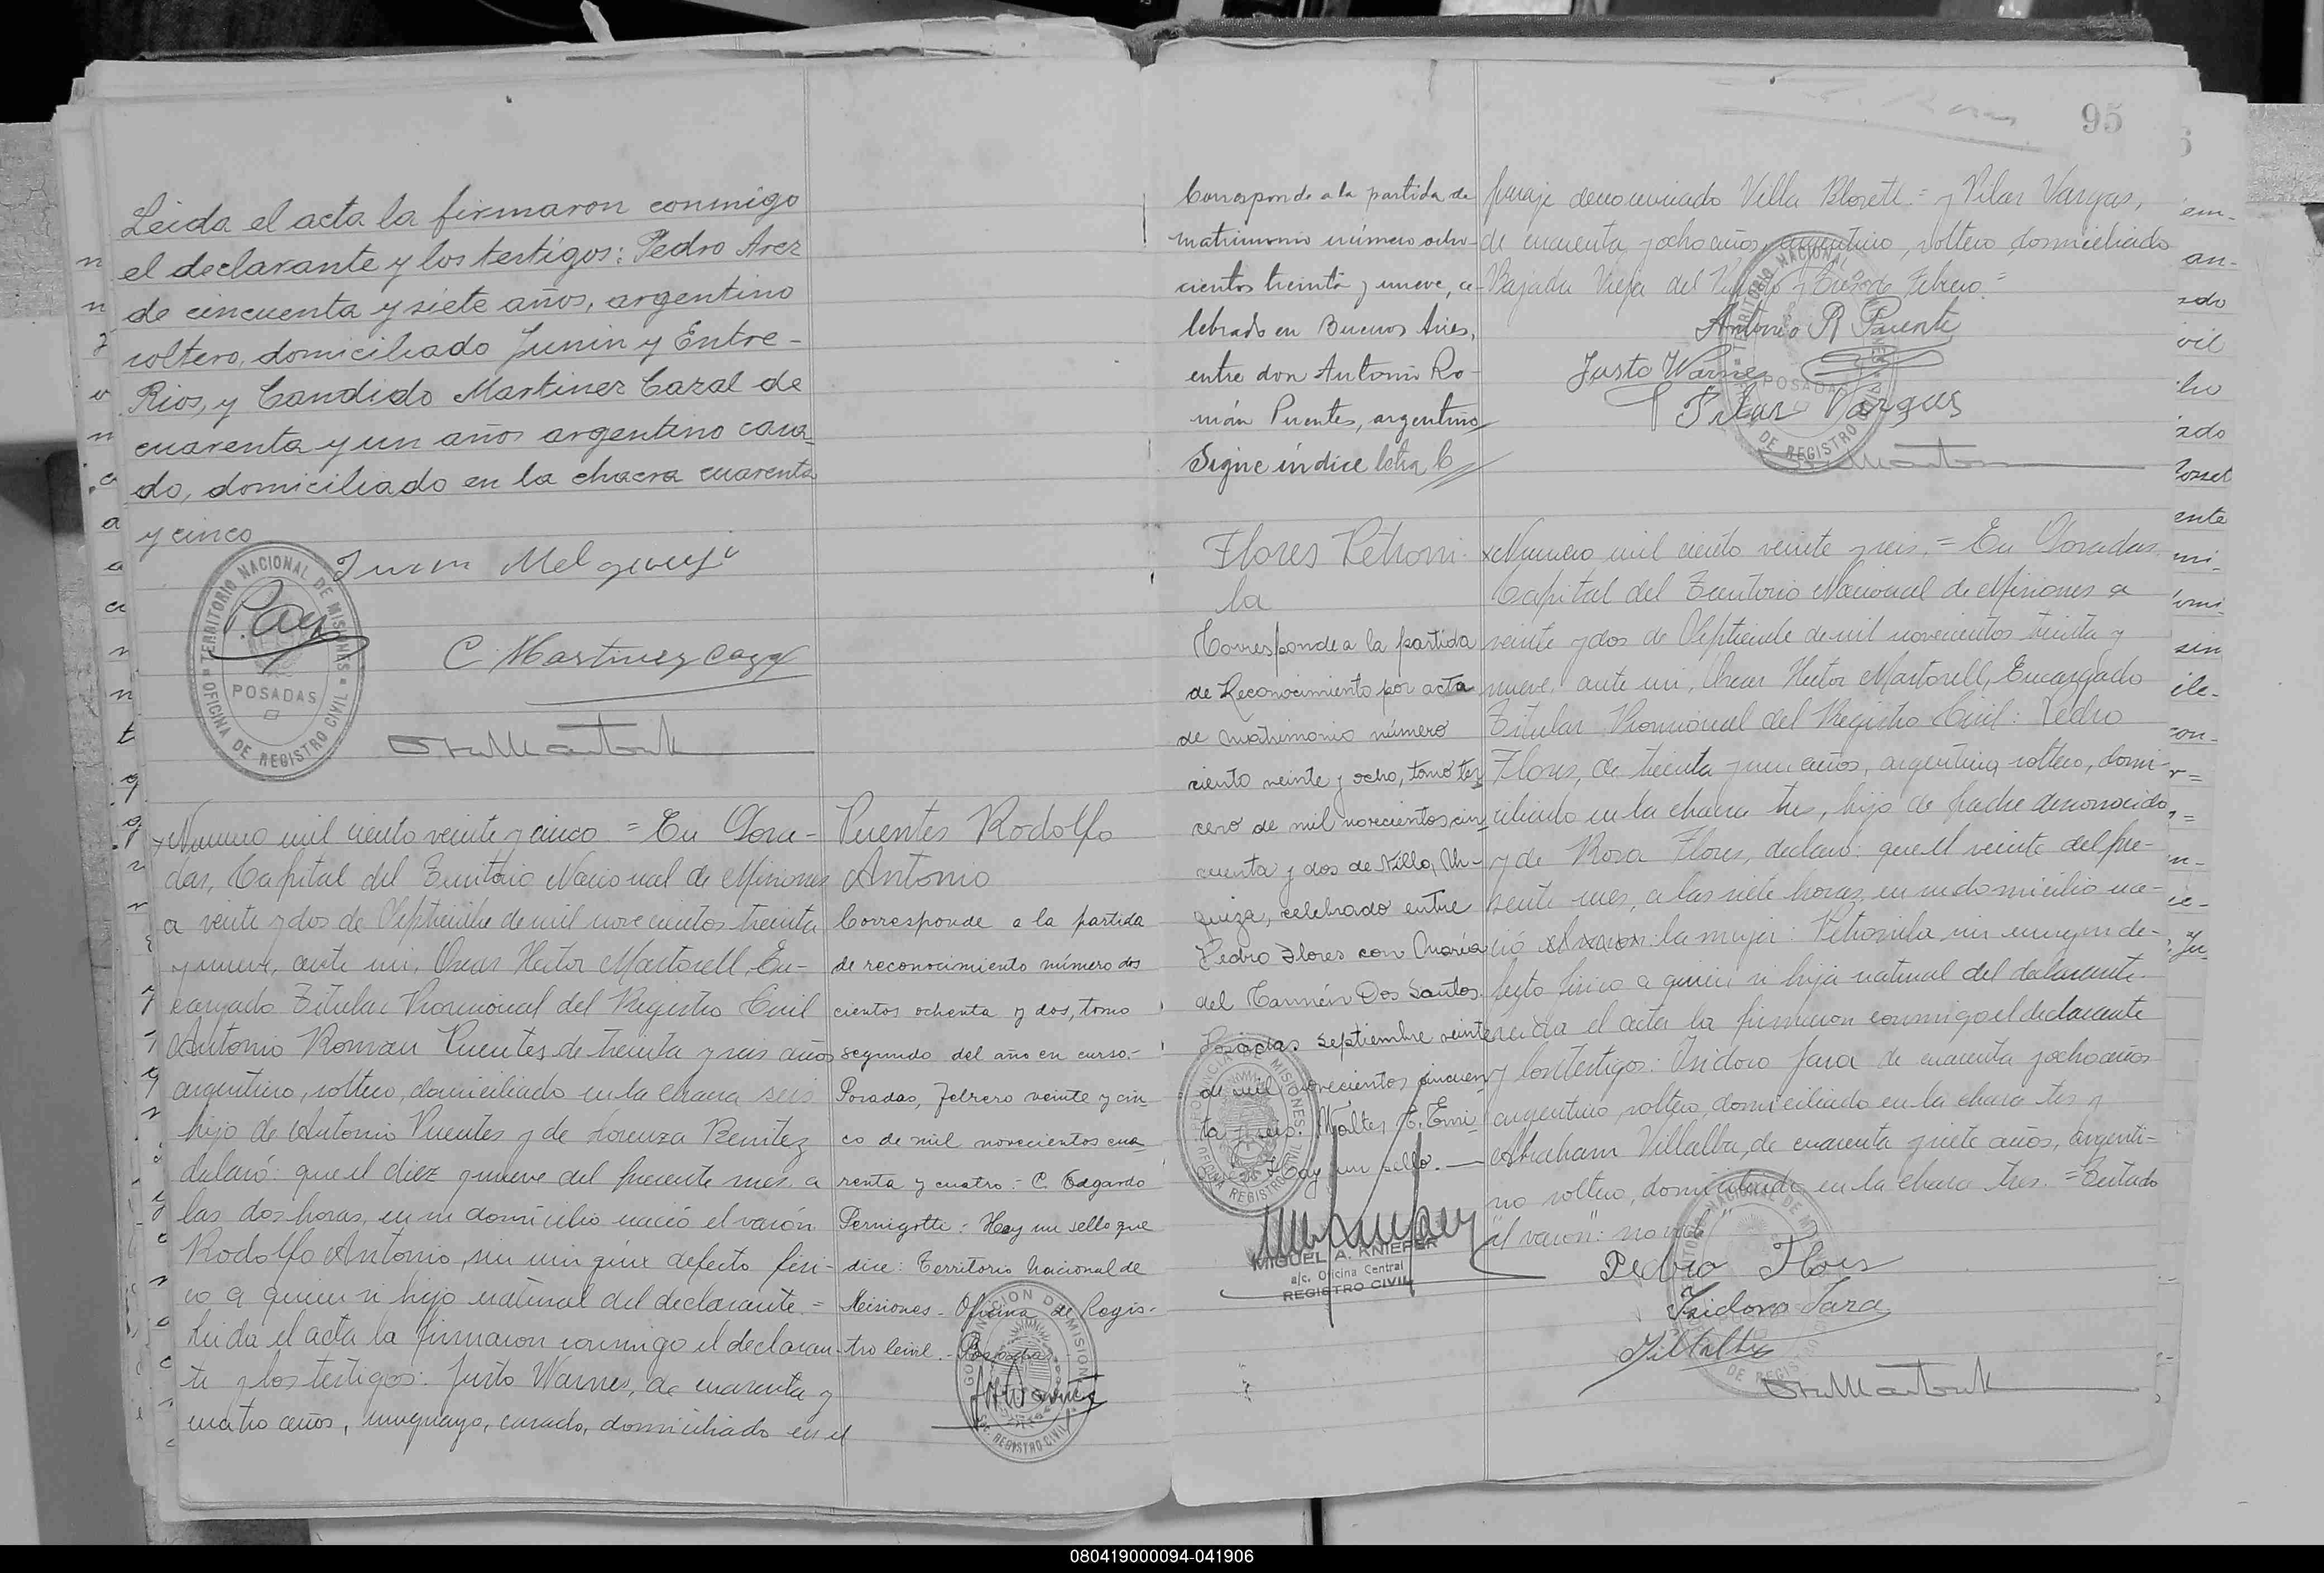 Leida el acta la firmaron conmigo
el declarante y los testigos: Pedro Arez
de cincuenta y siete años, argentino
soltero, domiciliado Junin y Entre-
Rios, y Candido Martinez Cazal de
cuarenta y un años argentino casa-
do, domiciliado en la chacra cuarenta
y cinco
TERRITORIO NACIONAL DE MISIONES
POSADAS
OFICINA DE REGISTRO CIVIL
C Martinez Cazal
Numero mil ciento veinte y cinco = En Posa-
das, Capital del Territorio Nacional de Misiones
a veinte y dos de Septiembre de mil novecientos treinta
y nueve, ante mi, Oscar Hector Martorell, En-
cargado Titular Provisional del Registro Civil
Antonio Roman Puentes de treinta y seis años
argentino, soltero, domiciliado en la chacra seis
hijo de Antonio Puentes y de Lorenza Benitez
declaró: que el diez y nueve del presente mes, a
las dos horas, en su domicilio nació el varón
Rodolfo Antonio, sin ningún defecto físi-
co a quien es hijo natural del declarante. =
Leida el acta la firmaron conmigo el declaran-
te y los testigos: Justo Warnes, de cuarenta y
cuatro años, uruguayo, casado, domiciliado en el
Puentes Rodolfo
Antonio
Corresponde a la partida
de reconocimiento número dos
cientos ochenta y dos, tomo
segundo del año en curso.-
Posadas, Febrero veinte y cin-
co de mil novecientos cua-
renta y cuatro.- C. Edgardo
Pernigotti: Hay un sello que
dice: Territorio Nacional de
Misiones - Oficina de Regis-
tro Civil. - Posadas
95
Corresponde a la partida de
matrimonio número ocho-
cientos treinta y nueve, ce-
lebrado en Buenos Aires,
entre don Antonio Ro-
mán Puentes, argentino
Sigue índice letra C
paraje denominado Villa Blosett = y Pilar Vargas,
de cuarenta y ocho años, argentino, soltero, domiciliado
Bajada Vieja del
Febrero =
Antonio R Puente
Justo Warnes
Pilar Vargas
TERRITORIO NACIONAL DE MISIONES
POSADAS
OFICINA DE REGISTRO CIVIL
Flores Petroni-
la
Corresponde a la partida
de Reconocimiento por acta
de matrimonio número
ciento veinte y ocho, tomo ter
cero de mil novecientos cin-
cuenta y dos de Villa, Ur-
quiza, celebrado entre
Pedro Flores con María
del Carmén Dos Santos.
Posadas septiembre veinte
de mil novecientos cincuen
Hay un sello. —
MIGUEL A. KNIEPER
a/c. Oficina Central
REGISTRO CIVIL
Numero mil ciento veinte y seis. = En Posadas,
Capital del Territorio Nacional de Misiones a
veinte y dos de Septiembre de mil novecientos treinta y
nueve, ante mi, Oscar Hector Martorell, Encargado
Titular Provisional del Registro Civil: Pedro
Flores, de treinta y un años, argentino, soltero, domi-
ciliado en la chacra tres, hijo de padre desconocido
y de Rosa Flores, declaró: que el veinte del pre-
sente mes, a las siete horas, en su domicilio na-
ció el varon: la mujer: Petronila sin ningun de-
fecto fisico a quien es hija natural del declarante.
Leida el acta la firmaron conmigo el declarante
y los testigos: Isidoro Jara de cuarenta y ocho años
argentino, soltero, domiciliado en la chacra tres y
Abraham Villalba, de cuarenta y siete años, argenti-
no soltero, domiciliado en la chacra tres. = Testado
"el varon": no vale"
Pedro Flores
Isidoro Jara